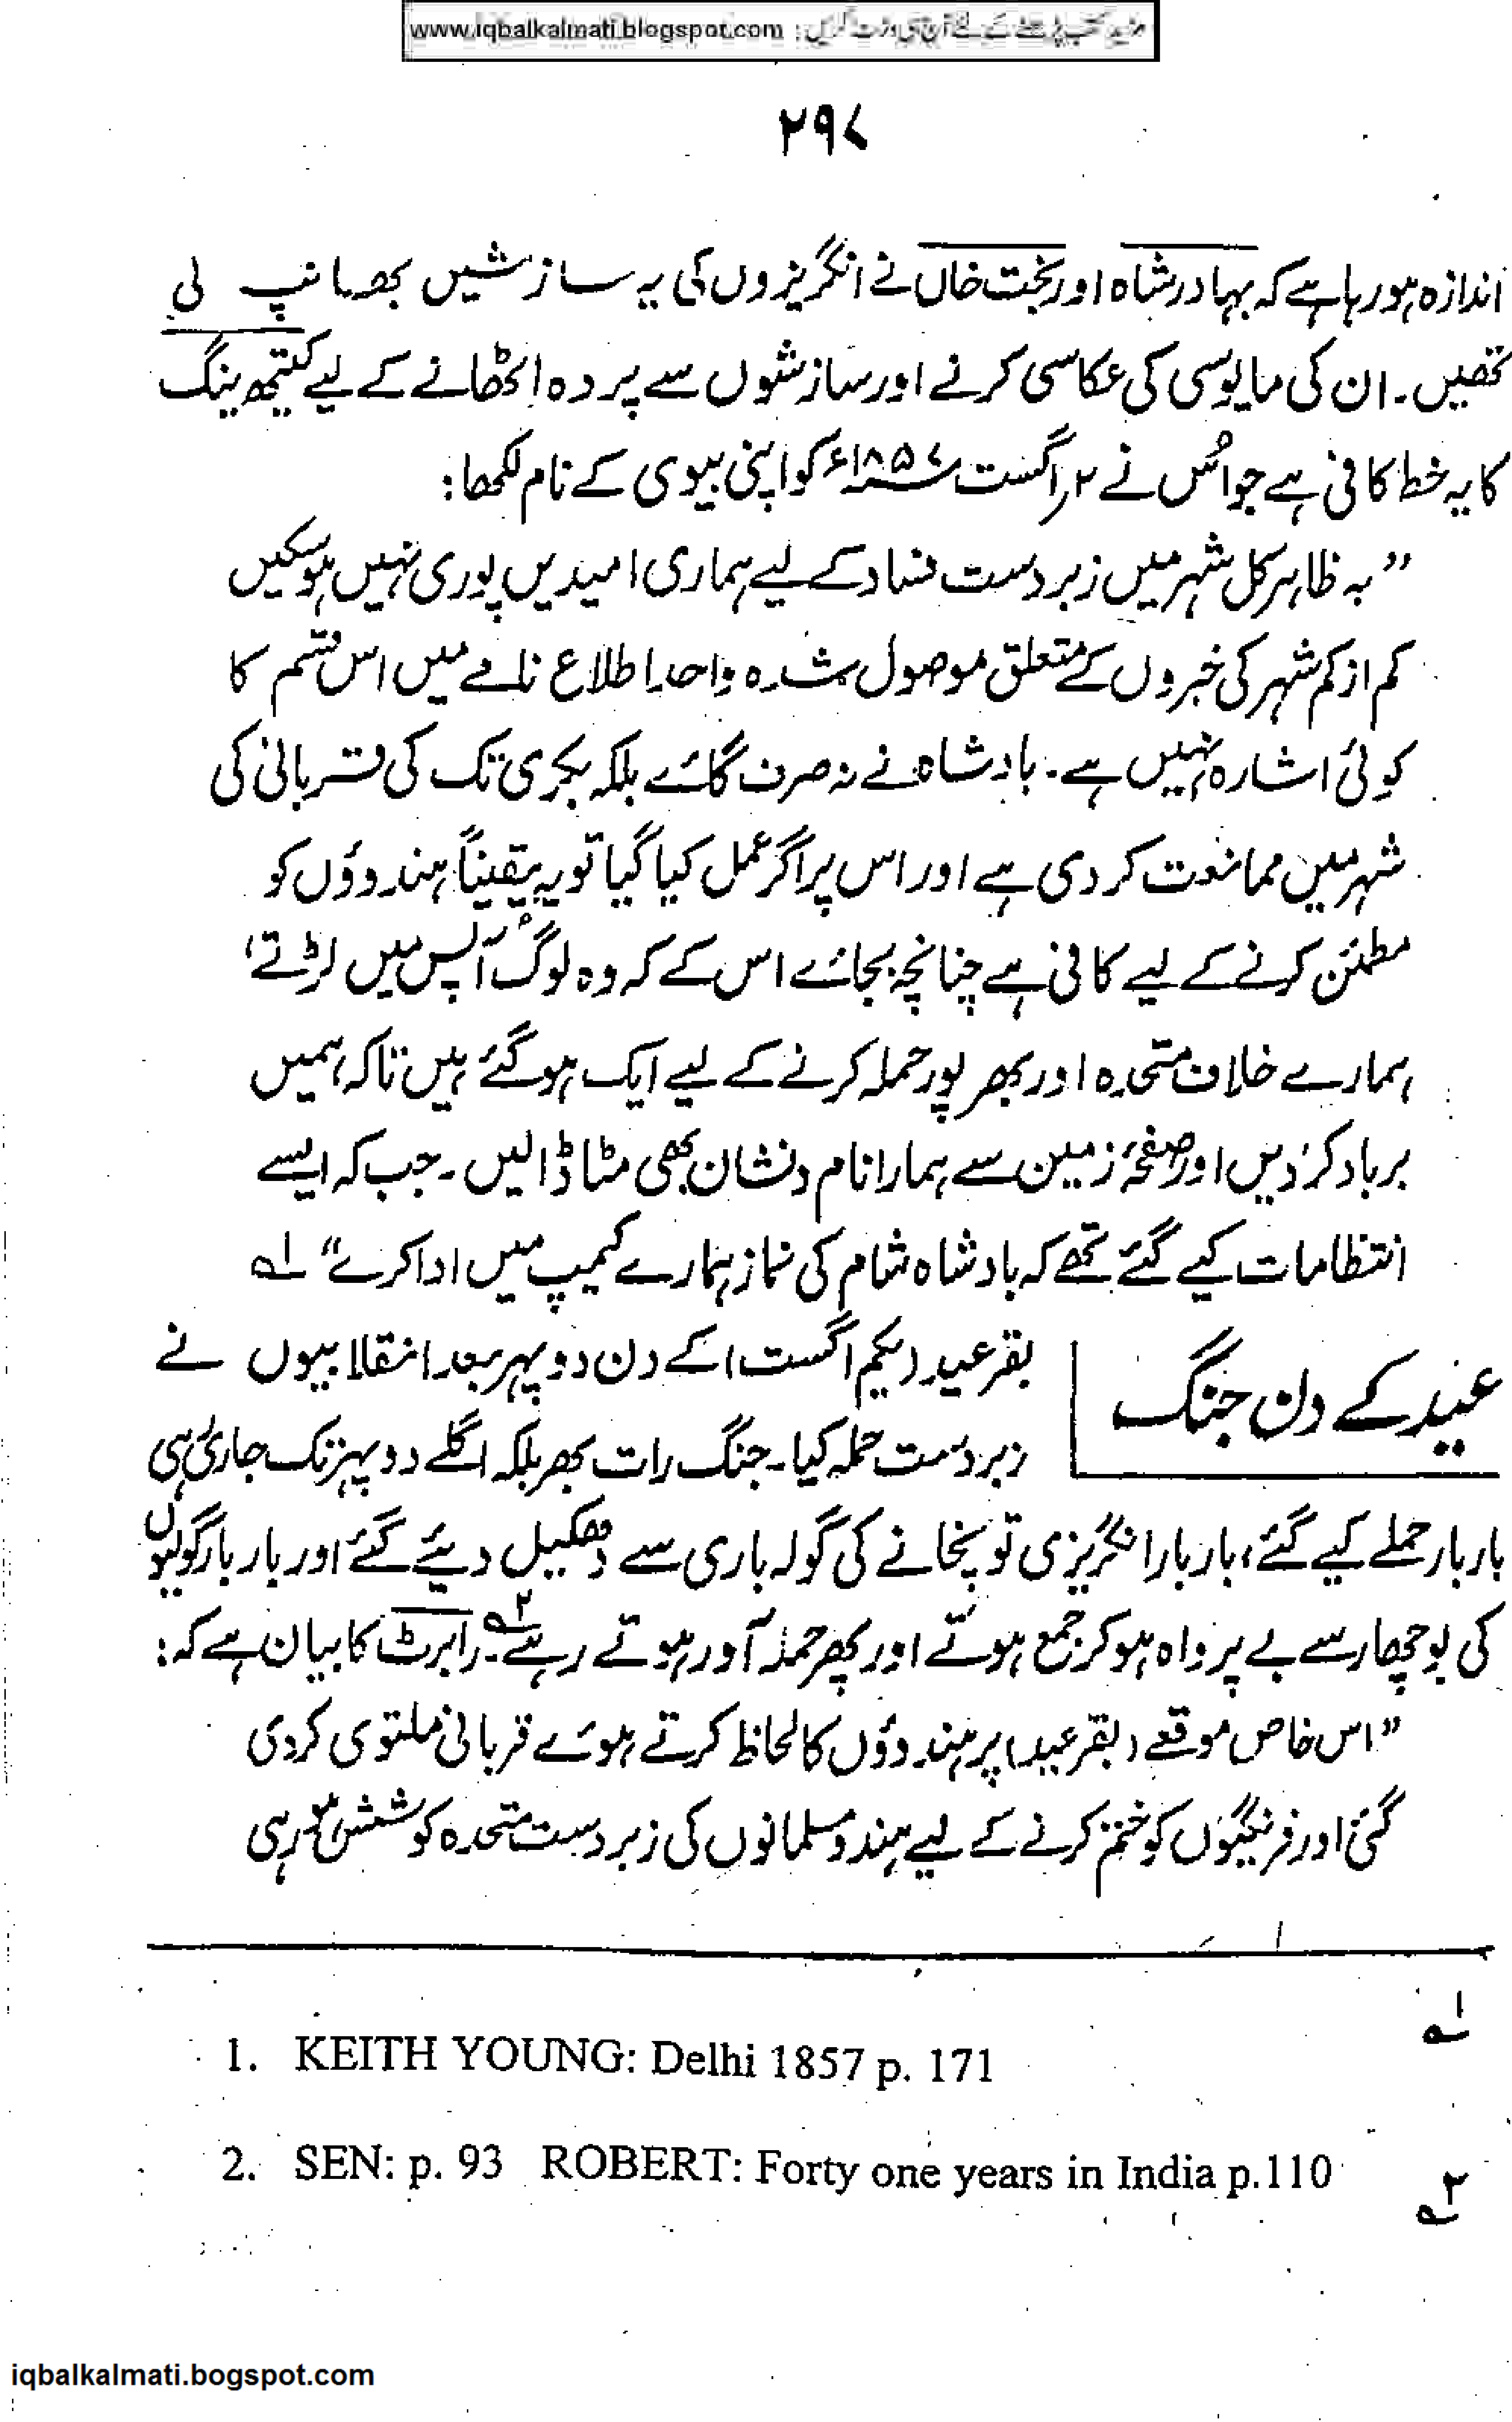 مزید کتب پڑھنے کے لئے آج ہی وزٹ کریں : www.iqbalkalmati.blogspot.com
۲۹۷
اندازہ ہو رہا ہے کہ بہادر شاہ اور بخت خاں نے انگریزوں کی یہ سازشیں بھانپ لی
تھیں۔ ان کی مایوسی کی عکاسی کرنے اور سازشوں سے پردہ اٹھانے کے لیے کیتھ ینگ
کا یہ خط کافی ہے جو اُس نے ۲؍اگست ۱۸۵۷ء کو اپنی بیوی کے نام لکھا:
”بہ ظاہر کل شہر میں زبردست فساد کے لیے ہماری امیدیں پوری نہیں ہوسکیں
کم از کم شہر کی خبروں کے متعلق موصول شدہ واحد اطلاع نامے میں اس قسم کا
کوئی اشارہ نہیں ہے۔ بادشاہ نے نہ صرف گائے بلکہ بکری تک کی قربانی کی
شہر میں ممانعت کردی ہے اور اس پر اگر عمل کیا گیا تو یہ یقیناً ہندوؤں کو
مطمئن کرنے کے لیے کافی ہے چنانچہ بجائے اس کے کہ وہ لوگ آپس میں لڑتے،
ہمارے خلاف متحدہ اور بھرپور حملہ کرنے کے لیے ایک ہوگئے ہیں تاکہ ہمیں
برباد کردیں اور صفحۂ زمین سے ہمارا نام و نشان بھی مٹا ڈالیں۔ جب کہ ایسے
انتظامات کیے گئے تھے کہ بادشاہ شام کی نماز ہمارے کیمپ میں ادا کرے“ ۱؎
عید کے دن جنگ
بقرعید (یکم اگست) کے دن دوپہر بعد انقلابیوں نے
زبردست حملہ کیا۔ جنگ رات بھر بلکہ اگلے دوپہر تک جاری رہی
بار بار حملے کیے گئے، بار بار انگریزی توپخانے کی گولہ باری سے دھکیل دیئے گئے اور بار بار گولیوں
کی بوچھار سے بے پرواہ ہو کر جمع ہوتے اور پھر حملہ آور ہوتے رہے۔۲؎ رابرٹ کا بیان ہے کہ:
”اس خاص موقعے (بقرعید) پر ہندوؤں کا لحاظ کرتے ہوئے قربانی ملتوی کردی
گئی اور فرنگیوں کو ختم کرنے کے لیے ہندو مسلمانوں کی زبردست متحدہ کوشش رہی
۱؎
1. KEITH YOUNG: Delhi 1857 p. 171
2. SEN: p. 93 ROBERT: Forty one years in India p.110
۲؎
iqbalkalmati.bogspot.com